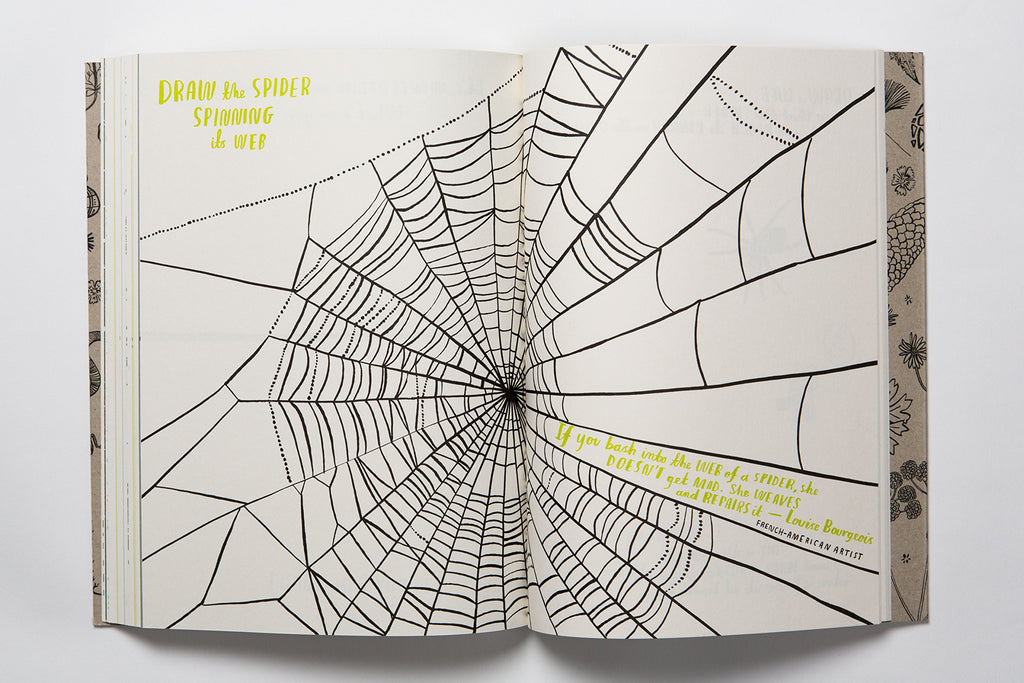 DRAW the SPIDER
SPINNING
its WEB
If you bash into the WEB of a SPIDER, she
DOESN'T get MAD. She WEAVES
and REPAIRS it — Louise Bourgeois
FRENCH-AMERICAN ARTIST